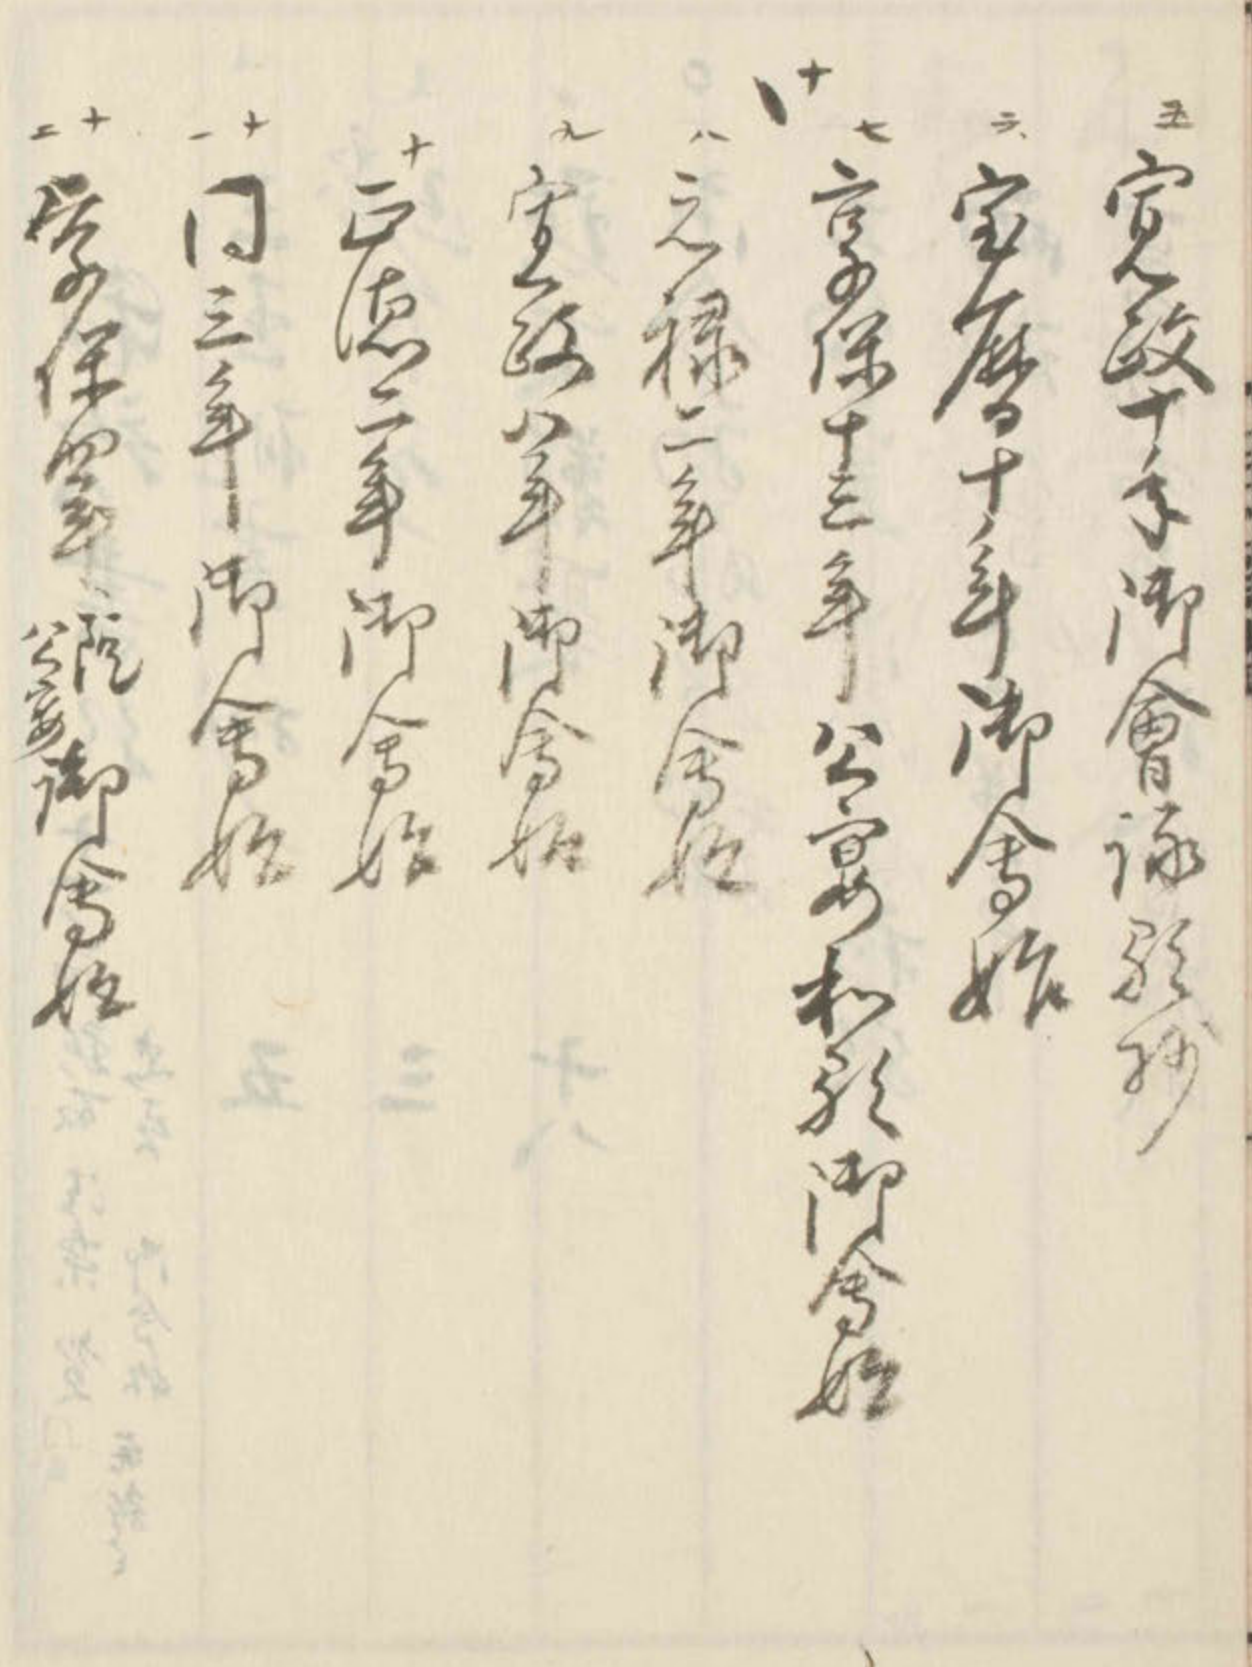 五 寛政十年御會詠歌抄
六 宝暦十年御會始
十
七 享保十三年公宴和歌御會始
八 元禄二年御會始
九 寛政八年御會始
十 正徳二年御會始
十一 同三年御會始
十二 享保四年院公宴御會始